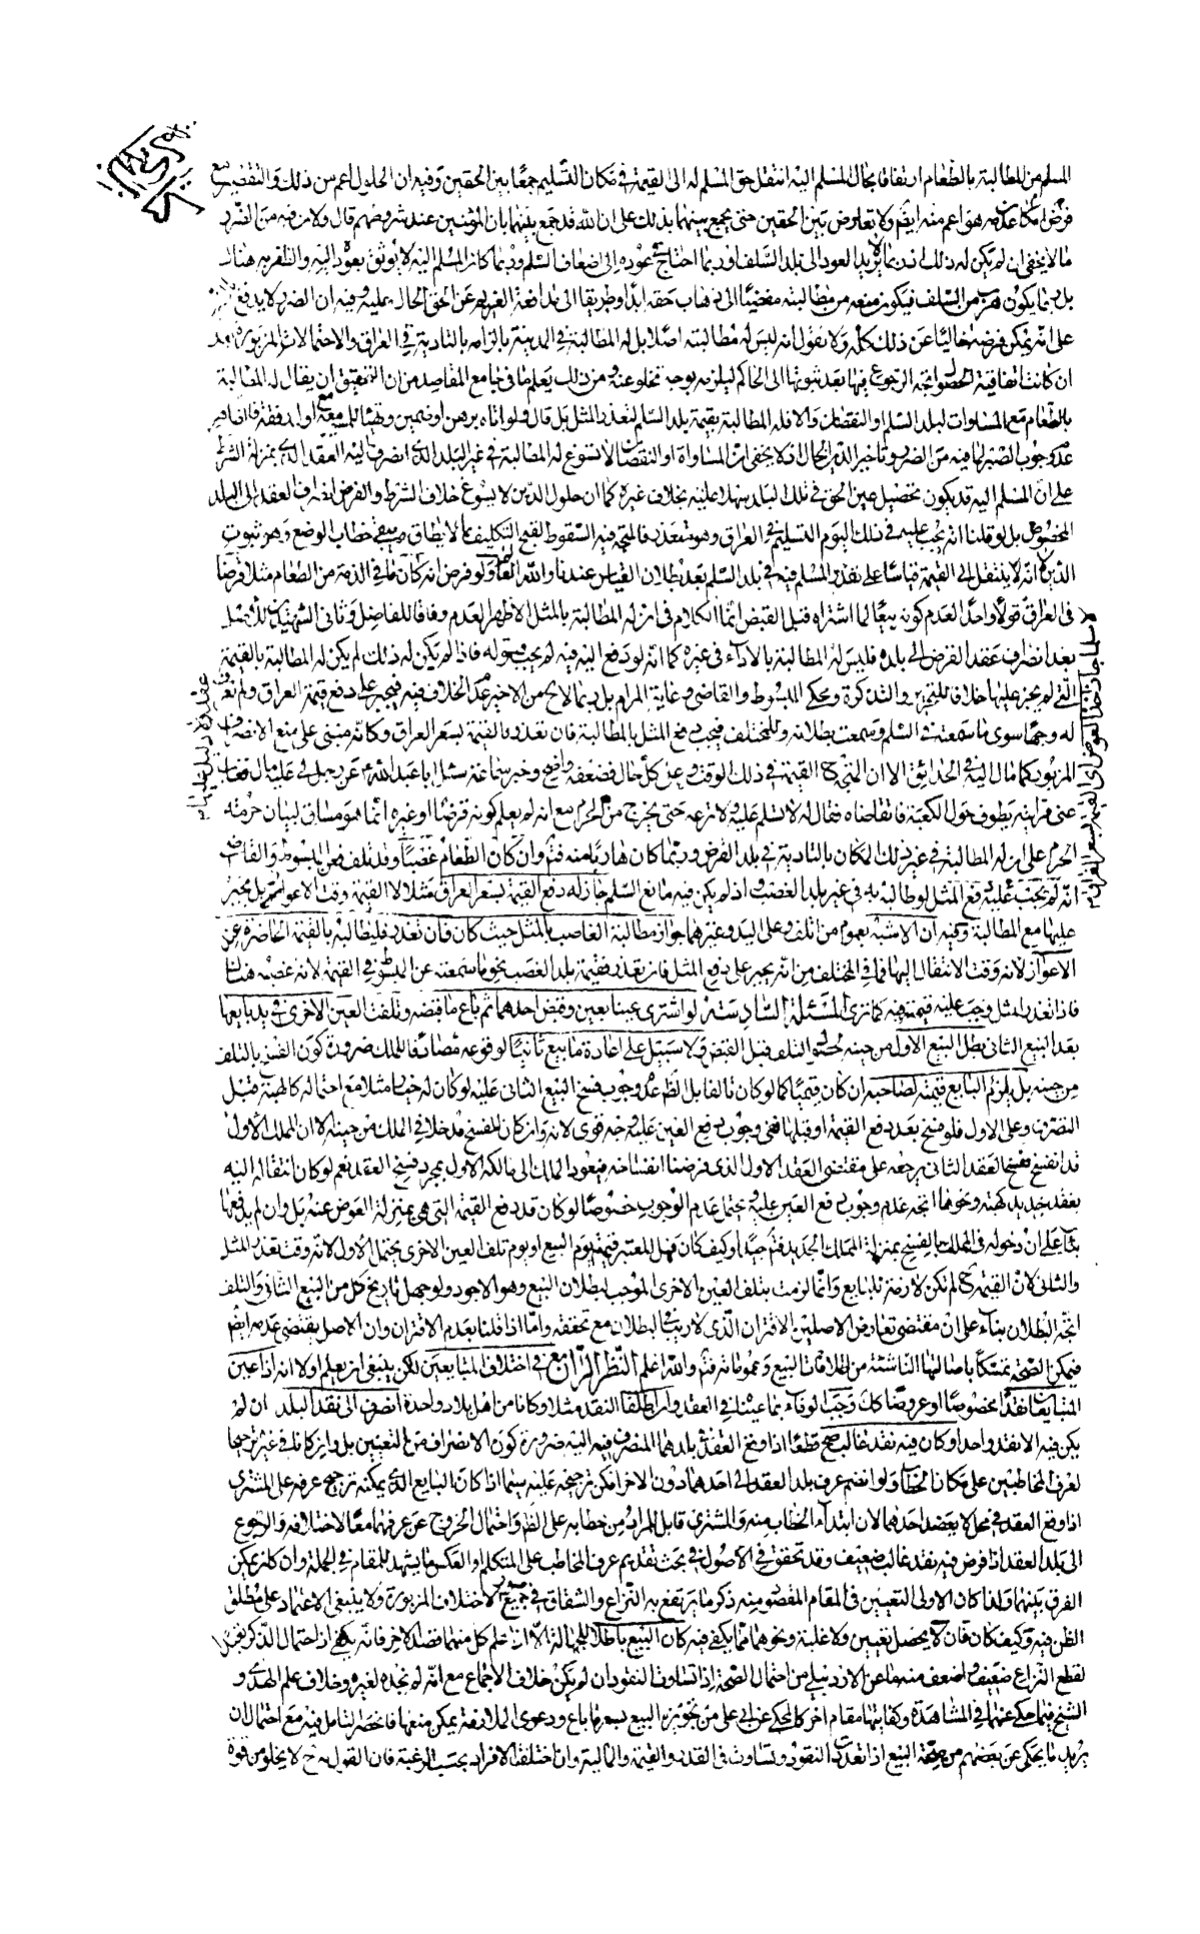 المسلم من المطالبة بالطعام ارتفاقا بحال المسلم اليه انتقل حق المسلم له الى القيمة في مكان التسليم جمعا بين الحقين وفيه ان الحلول اعم من ذلك والتقصير مع
فرض امكان عدمه هو اعم منه ايضم ولا تعارض بين الحقين حتى يجمع بينهما بذلك على ان الله قد جمع بينهما بان المؤمنين عند شروطهم قال ولا من فيه من الضرر
ما لا يخفى ان لم يكن له ذلك اذ ربما لا يريد العود الى بلد السلف او ربما احتاج في عوده الى اضعاف السلم وربما كان المسلم اليه لا يوثق بعوده اليه والظفر به هناك
بل ربما يكون هرب من السلف فيكون منعه من مطالبته مفضيا الى ذهاب حقه ابدا وطريقا الى مدافعة الغريم عن الحق الحال عليه وفيه ان الضرر لا يدفع
على انه يمكن فرضه خاليا عن ذلك كله ولا نقول انه ليس له مطالبته اصلا بل له المطالبة في المدينة بالزامه بالتادية في العراق والاحتمالات المزبورة
ان كانت اتفاقية الحصول اتجه الرجوع فيها بعد ثبوتها الى الحاكم ليلزمه بوجه تخلو عنه ومن ذلك يعلم ما في جامع المقاصد من ان التحقيق ان يقال له المطالبة
بالطعام مع المساوات لبلد السلم والنقصان والا فله المطالبة بقيمة بلد السلم لتعذر المثل بل قال ولو اتاه برهن او ضمين وتهيا للمسير معه او ارفقة
عدم وجوب الصبر لما فيه من الضرر وتاخير الدين الحال اذ لا يخفى ان المساواة او النقصان لا تسوغ له المطالبة في غير البلد الذي انصرف اليه العقد الذي بمنزلة الشرط
على ان المسلم اليه قد يكون تحصيل عين الحق في تلك البلد سهلا عليه بخلاف غيره كما ان حلول الدين لا يسوغ خلاف الشرط والفرض انصراف العقد الى البلد
المخصوص بل لو قلنا انه يجب عليه في ذلك اليوم التسليم في العراق وهو متعذر فالمتجه فيه السقوط لقبح التكليف بما لا يطاق ويبقى خطاب الوضع وهو ثبوت
الدين لا انه لا ينتقل الى القيمة قياسا على تعذر المسلم فيه في بلد السلم بعد بطلان القياس عندنا والله العالم ولو فرض انه كان ما في الذمة من الطعام مثلا قرضا
في العراق قولا واحدا لعدم كونه بيعا لما اشتراه قبل القبض انما الكلام في ان له المطالبة بالمثل الاظهر العدم وفاقا للفاضل وثاني الشهيدين
بعد انصراف عقد القرض الى بلده فليس له المطالبة بالاداء في غيره كما انه لو دفع اليه فيه لم يجب قبوله فاذا لم يكن له ذلك لم يكن له المطالبة بالقيمة
التي لم يجز عليها خلافا للتحرير والتذكرة ومحكي المبسوط والقاضي وغاية المرام بل ربما لاح من الاخير عدم الخلاف فيه فيجبر على دفع قيمة العراق ولم نعرف
له وجها سوى ما سمعته في السلم وسمعت بطلانه وللمختلف فيجب دفع المثل بالمطالبة فان تعذر فالقيمة بسعر العراق وكانه مبني على منع الانصراف
المزبور كما مال اليه في الحدائق الا ان المتجه ح القيمة في ذلك الوقت وعلى كل حال فضعفه واضح وخبر سماعة سئل ابا عبد الله ع عن رجل لي عليه مال فغاب
عني فرايته يطوف حول الكعبة فاتقاضاه فقال له لا تسلم عليه ولا ترعه حتى يخرج من الحرم مع انه لم يعلم كونه قرضا او غيره انما هو مساق لبيان حرمة
الحرم على ان له المطالبة في غير ذلك المكان بالتادية في بلد القرض وربما كان هاربا منه فتم وان كان الطعام غصبا وقد تلف فعن المبسوط والقاضي
انه لم يجب عليه دفع المثل لو طالبه به في غير بلد الغصب واذ لم يكن فيه مانع السلم جاز له دفع القيمة بسعر العراق مثلا لا القيمة وقت الاعواز بل يجبر
عليها مع المطالبة وفيه ان الاشبه بعموم من اتلف وعلى اليد وغيرهما جواز مطالبة الغاصب بالمثل حيث كان فان تعذر فليطالبه بالقيمة الحاضرة عن
الاعواز لانه وقت الانتقال اليها فما في المختلف من انه يجبر على دفع المثل فان تعذر فقيمة بلد الغصب نحو ما سمعته عن المبسوط في القيمة لانه غصبه هناك
فاذا تعذر المثل وجب عليه قيمته فيه كما ترى المسئلة السادسة لو اشترى عينا بعين وقبض احدهما ثم باع ما قبضه وتلفت العين الاخرى في يد بايعها
بعد البيع الثاني بطل البيع الاول من حينه لحصول التلف قبل القبض ولا سبيل على اعادة ما بيع ثانيا لوقوعه مصادفا للملك ضرورة كون الفسخ بالتلف
من حينه بل يلزم البايع قيمته لصاحبه ان كان قيميا كما لو كان تالفا بل الظم عدم وجوب فسخ البيع الثاني عليه لو كان له خيار مثلا مع احتماله كالهبة قبل
التصرف وعلى الاول فلو فسخ بعد دفع القيمة او قبلها ففي وجوب دفع العين عليه وجه قوي لانه وان كان للفسخ مدخلا في الملك من حينه الا ان الملك الاول
قد انفسخ ففسخ العقد الثاني يرجعه على مقتضى العقد الاول الذي فرضنا انفساخه فيعود الملك الى مالكه الاول بمجرد فسخ العقد نعم لو كان انتقاله اليه
بعقد جديد كهبة ونحوها اتجه عدم وجوب دفع العين عليه ويحتمل عدم الوجوب خصوصا لو كان قد دفع القيمة التي هي بمنزلة العوض عنه بل وان لم يدفعها
بناء على ان دخوله في الملك بالفسخ بمنزلة الملك الجديد فتم جيدا وكيف كان فهل المعتبر قيمته يوم البيع او يوم تلف العين الاخرى يحتمل الاول لانه وقت تعذر المثل
والثاني لان القيمة ح لم تكن لازمة للبايع وانما لزمت بتلف العين الاخرى الموجب لبطلان البيع وهو الاجود ولو جهل تاريخ كل من البيع الثاني والتلف
اتجه البطلان بناء على ان مقتضى تعارض الاصلين الاقتران الذي لا ريب في البطلان مع تحققه واما اذا قلنا بعدم الاقتران وان الاصل يقتضي عدمه ايضم
فيمكن الصحة تمسكا باصالتها الناشئة من اطلاقات البيع وعموماته فتم والله اعلم النظر الرابع في اختلاف المتبايعين لكن ينبغي ان يعلم اولا انه اذا عين
المتبايعان نقدا مخصوصا او عروضا كك وجب الوفاء بما عيناه في العقد وان اطلقا النقد مثلا وكانا من اهل بلاد واحدة انصرف الى نقد البلد ان لم
يكن فيه الا نقد واحد او كان فيه نقد غالب صح قطعا اذا وقع العقد في بلدهما المنصرف فيه اليه ضرورة كون الانصراف من التعيين بل وان كانا في غيره ترجيحا
لعرف المخاطبين على مكان الخطاب ولو انضم عرف بلد العقد الى احدهما دون الاخر امكن ترجيحه عليه سيما اذا كان البايع الذي يمكن ترجيح عرفه على المشتري
اذا وقع العقد في محل لا يعضد احدهما لان ابتداء الخطاب منه والمشتري قابل للمراد من خطابه على الظم واحتمال الخروج عن عرفهما معا لاختلافه والرجوع
الى بلد العقد اذا فرض فيه نقد غالب ضعيف وقد تحقق في الاصول في بحث تقديم عرف المخاطب على المتكلم او العكس ما يشهد للمقام في الجملة وان كان يمكن
الفرق بينهما ولذا كان الاولى التعيين في المقام المقصود منه ذكر ما يرتفع به النزاع والشقاق في جميع الاختلاف المزبورة ولا ينبغي الاعتماد على مطلق
الظن فيه وكيف كان فان لا يحصل تعيين ولا غلبة ونحوهما مما يكفي فيه كان البيع باطلا للجهالة الا اذا علم كل منهما قصد الاخر فانه يكفي اذ احتمال الذكر تعبدا
لقطع النزاع ضعيف واضعف منه ما عن الاردبيلي من احتمال الصحة اذا تساوت النقود ان لم يكن خلاف الاجماع مع انه لم نجده لغيره وخلاف علم الهدى و
الشيخ فيما حكي عنهما في المشاهدة وكفايتها مقام اخر كالمحكي عن ابي علي من تجويزه البيع بسعر ما باع ودعوى الملازمة يمكن منعها فانحصر التامل فيه مع احتمال ان
يريد ما يحكى عن بعضهم من صحة البيع اذا تعددت النقود وتساوت في القدر والقيمة والمالية وان اختلفت الافراد بحسب الرغبة فان القول به ح لا يخلو من قوة